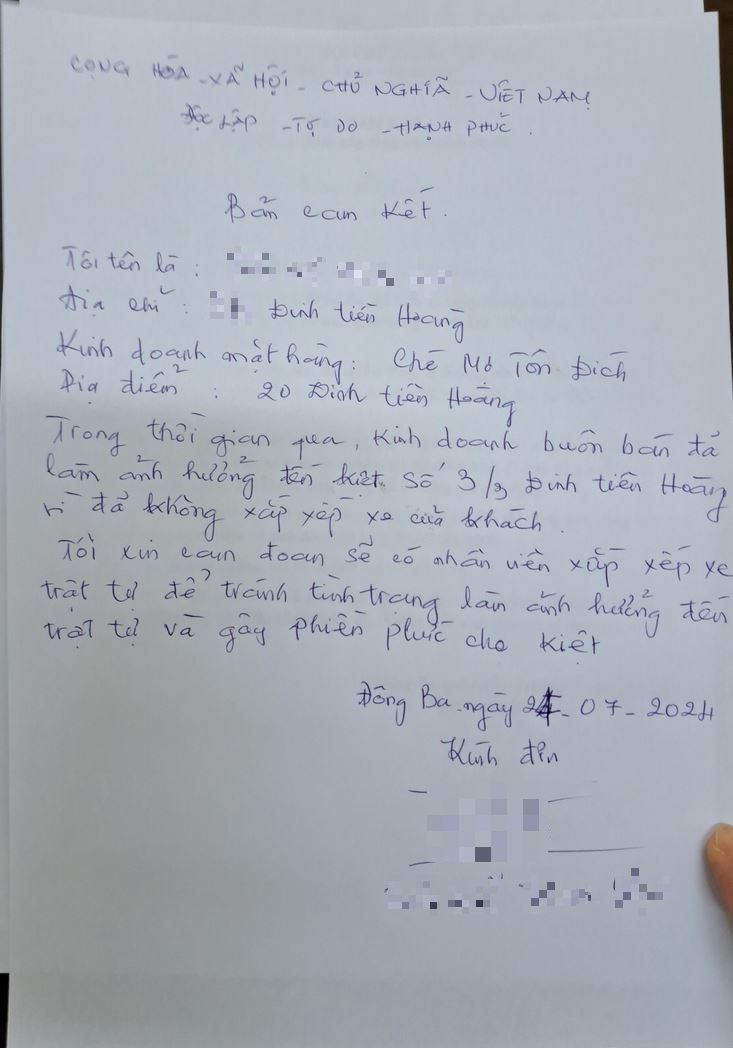 CỘNG HÓA - XÃ HỘI - CHỦ NGHĨÃ - VIỆT NAM
ĐỘC LẬP - TỰ DO - HẠNH PHÚC.
Bản cam Kết.
Tôi tên là :
Địa chỉ : Đinh tiên Hoàng
Kinh doanh mặt hàng: Chè Mợ Tôn Đích
Địa điểm : 20 Đinh tiên Hoàng
Trong thời gian qua, Kinh doanh buôn bán đả
làm ảnh hưởng đến kiệt số 3/3 Đinh tiên Hoàng
vì đả không xắp xếp xe của khách.
Tôi xin cam đoan sẽ có nhân viên xắp xếp xe
trật tự để tránh tình trạng làm ảnh hưởng đến
trật tự và gây phiền phức cho kiệt
Đông Ba ngày - 07 - 2024
Kính đơn